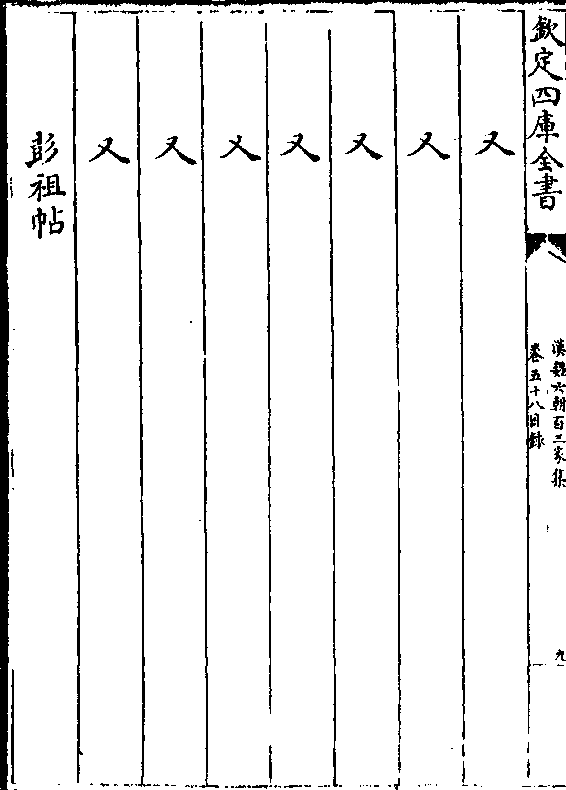 欽定四庫全書
漢魏六朝百三家集
卷五十八目錄
九
又
又
又
又
又
又
又
彭祖帖